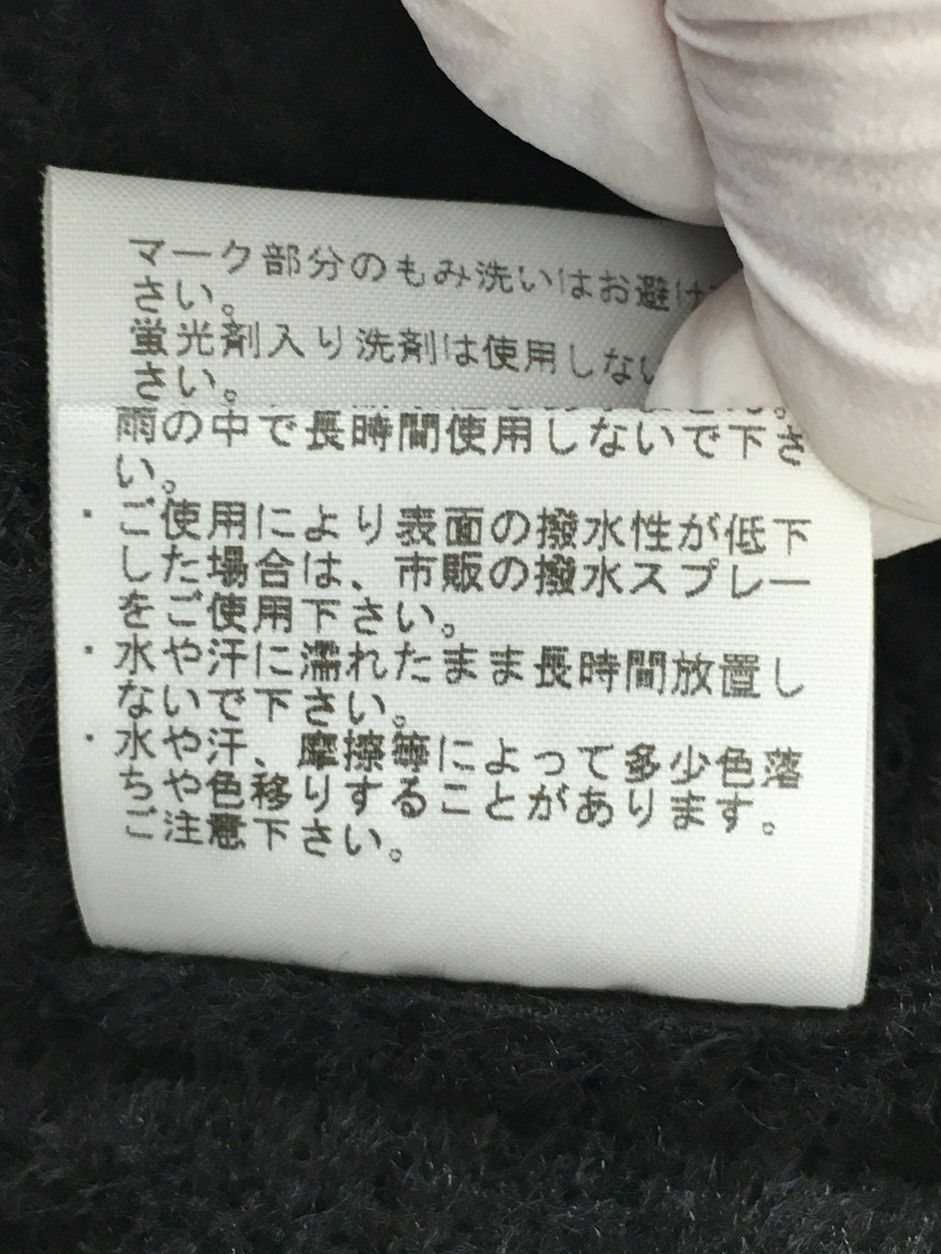 マーク部分のもみ洗いはお避け
さい。
蛍光剤入り洗剤は使用しない
さい。
雨の中で長時間使用しないで下さ
い。
・ご使用により表面の撥水性が低下
した場合は、市販の撥水スプレー
をご使用下さい。
・水や汗に濡れたまま長時間放置し
ないで下さい。
・水や汗、摩擦等によって多少色落
ちや色移りすることがあります。
ご注意下さい。